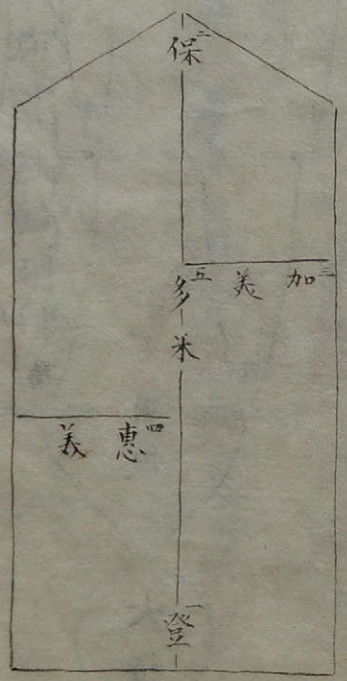 保二
加三美
多五米
惠四美
登一